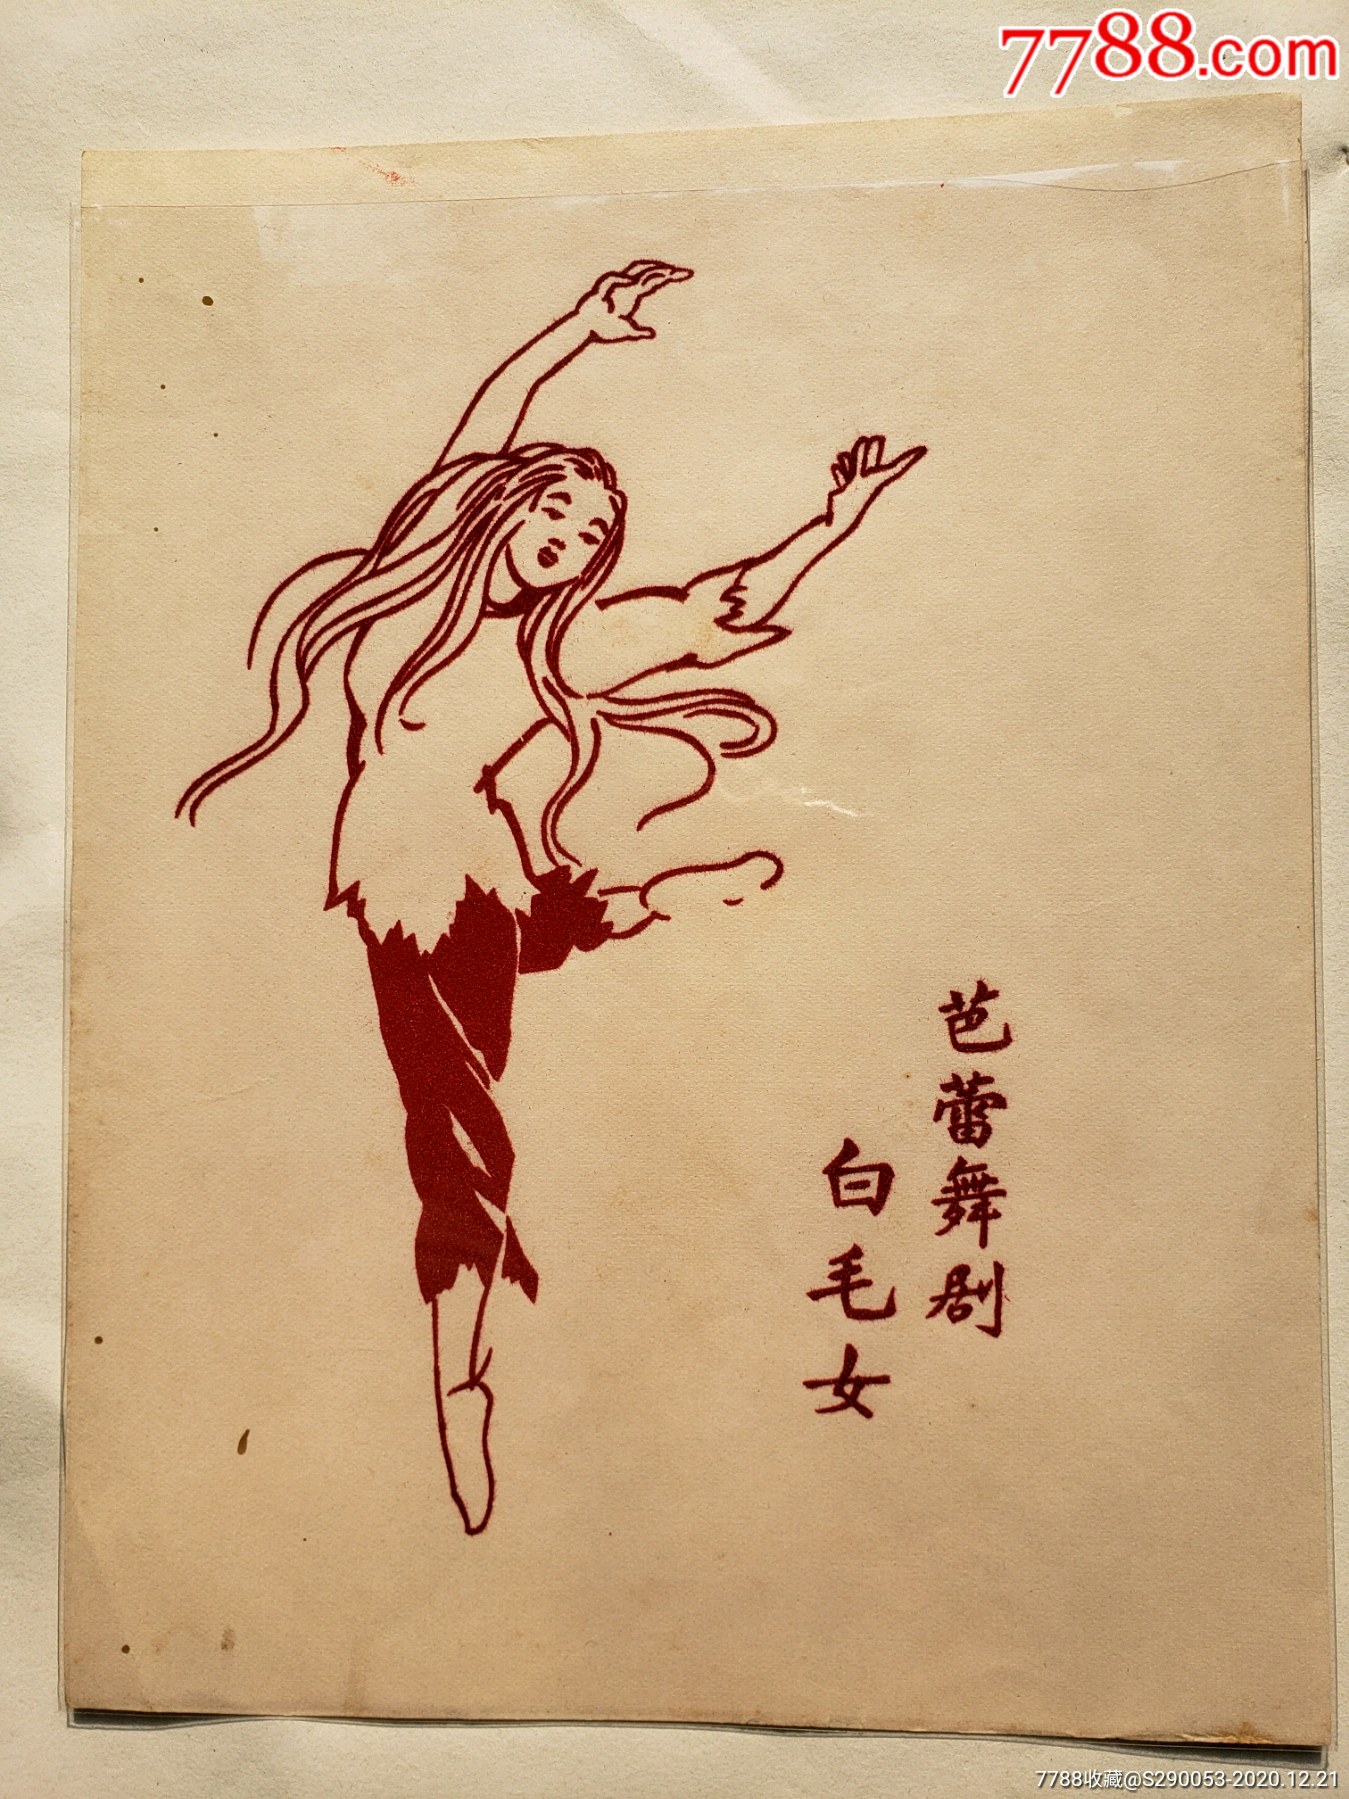 7788.com
芭蕾舞剧
白毛女
7788收藏@S290053-2020.12.21